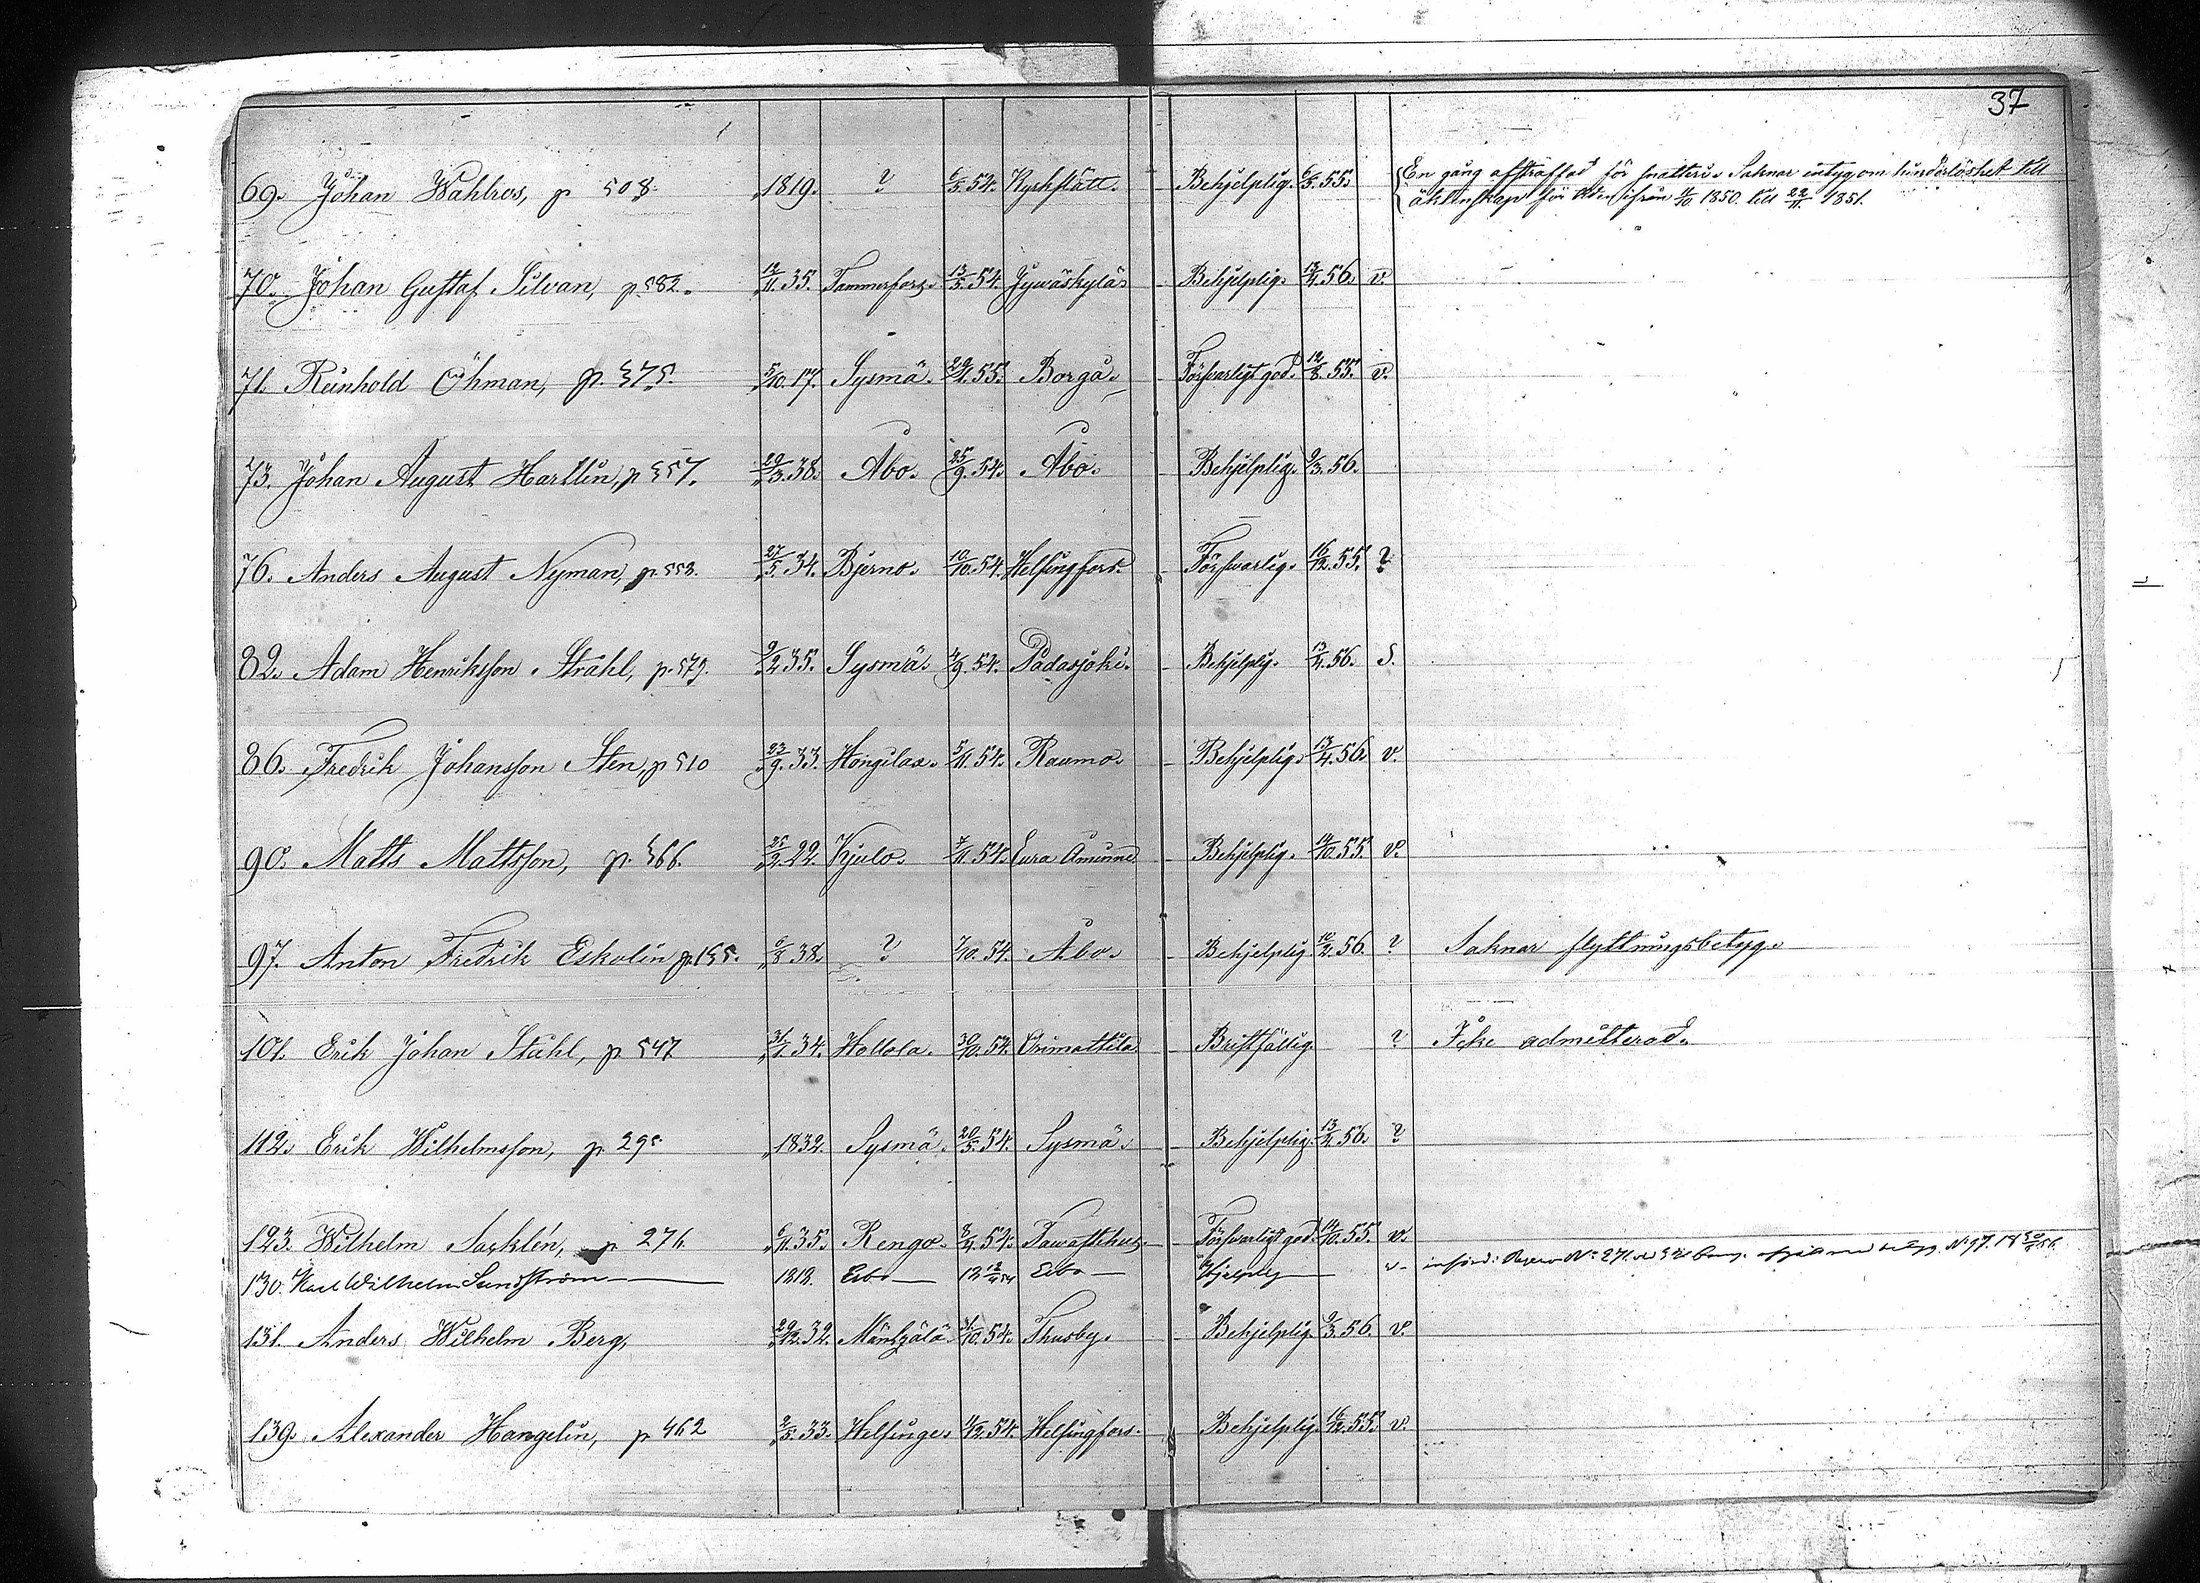 37
69. Johan Wahlros, p 508. 1819. ? 6/5.54. Kyrkslätt. Behjelplig. 6/5.55. En gång afstraffad för snatteri. Saknar intyg om hinderlöshet till
äktenskap för tiden ifrån 11/10 1850. till 22/11. 1851.
70. Johan Gustaf Silvan, p.582. 12/11.35. Tammerfors. 13/5.54. Jywäskylä. Behjelplig. 13/4.56. v.
71. Reinhold Öhman, p. 575. 5/10.17. Sysmä. 29/4.55. Borgå. Försvarligt god. 12/8.55. v.
73. Johan August Harllin, p 557. 20/3.38. Åbo. 25/9.54. Åbo. Behjelplig. 9/3.56.
76. Anders August Nyman, p.553. 27/5.34. Bjerno. 10/10.54. Helsingfors. Försvarlig. 16/12.55. ?
82. Adam Henriksson Stråhl, p.579. 9/2.35. Sysmä. 4/9.54. Padasjoki. Behjelplig. 13/4.56. S.
86. Fredrik Johansson Sten, p 510 23/9.33. Hongilax. 5/11.54. Raumo. Behjelplig. 13/4.56. v.
90. Matts Mattsson, p. 566. 25/2.22. Kjulo. 7/11.54. Eura Åminne Behjelplig. 14/10.55. v.
97. Anton Fredrik Eskolin p.155. 6/8.38. ? 7/10.54. Åbo. Behjelplig 10/2.56. ? Saknar flyttningsbetyg.
101. Erik Johan Ståhl, p. 547 31/1.34. Hollola. 30/10.54. Orimattila Bristfällig ? Icke admitterad.
112. Erik Wilhelmsson, p. 295 1832. Sysmä. 20/5.54. Sysmä. Behjelplig. 13/4.56. ?
123. Wilhelm Sacklén, p 276. 6/11.35. Rengo. 8/4.54. Tawastehus. Försvarligt god. 14/10.55. v.
130. Karl Wilhelm Sundström 1818. Esbo 12/4 54 Esbo Hjelplig v.
131. Anders Wilhelm Berg, 29/12.32. Mäntzälä. 31/10.54. Thusby. Behjelplig. 9/3.56. v.
139. Alexander Hangelin, p 462 2/5.33. Helsinge. 4/12.54. Helsingfors. Behjelplig. 16/12.55. v.